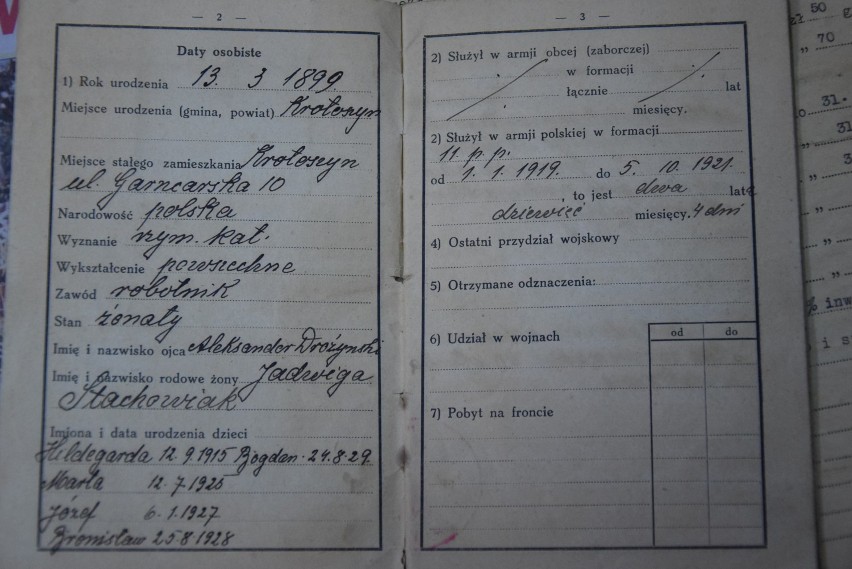 — 2 —
Daty osobiste
1) Rok urodzenia 13. 3 1899.
Miejsce urodzenia (gmina, powiat) Krotoszyn
Miejsce stałego zamieszkania Krotoszyn
ul. Garncarska 10
Narodowość polska
Wyznanie rzym. kat.
Wykształcenie powszechne
Zawód robotnik
Stan żonaty
Imię i nazwisko ojca Aleksander Drożynski
Imię i nazwisko rodowe żony Jadwiga
Stachowiak
Imiona i data urodzenia dzieci
Hildegarda 12.9.1915 Bogdan 24.8.29.
Marta 12.7.1925
Józef 6.1.1927
Bronisław 25.8.1928
— 3 —
2) Służył w armji obcej (zaborczej)
w formacji
łącznie lat
miesięcy.
2) Służył w armji polskiej w formacji
11 p.p.
od 1. 1. 1919. do 5. 10. 1921.
, to jest dwa lata
dziewięć miesięcy. 4 dni
4) Ostatni przydział wojskowy
5) Otrzymane odznaczenia:
6) Udział w wojnach
od do
7) Pobyt na froncie
zł 50 g
„ 70
31.
31
3
„
„
inw
i s